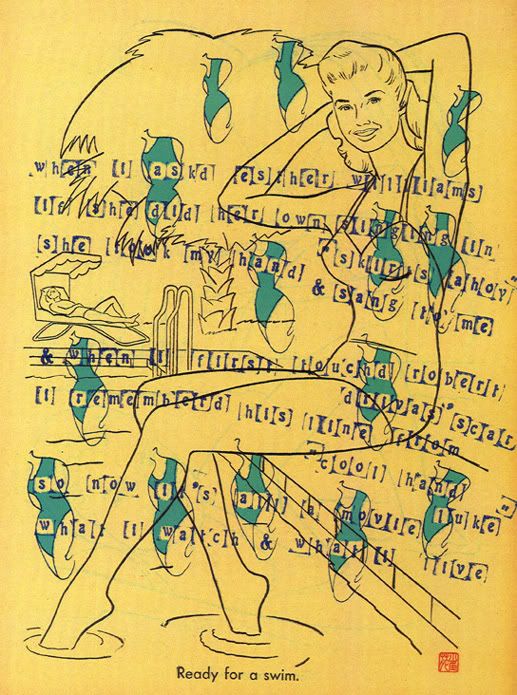 when i askd esther williams
if she did her own singing in
"skirts ahoy"
she took my hand & sang to me
& when i first touchd robert
scar
i rememberd his line from
"cool hand luke"
so now it's all a movie
what i watch & what i live
Ready for a swim.